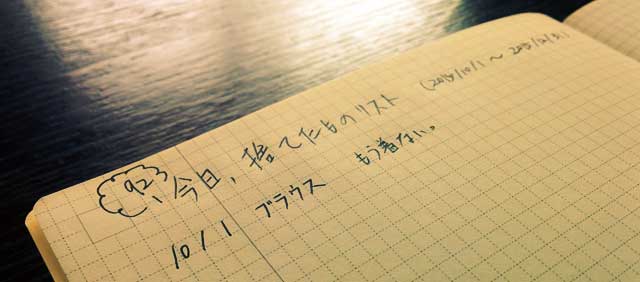 92、今日、捨てたものリスト (2015/10/1 〜 2015/12/31)
10/1 ブラウス もう着ない。